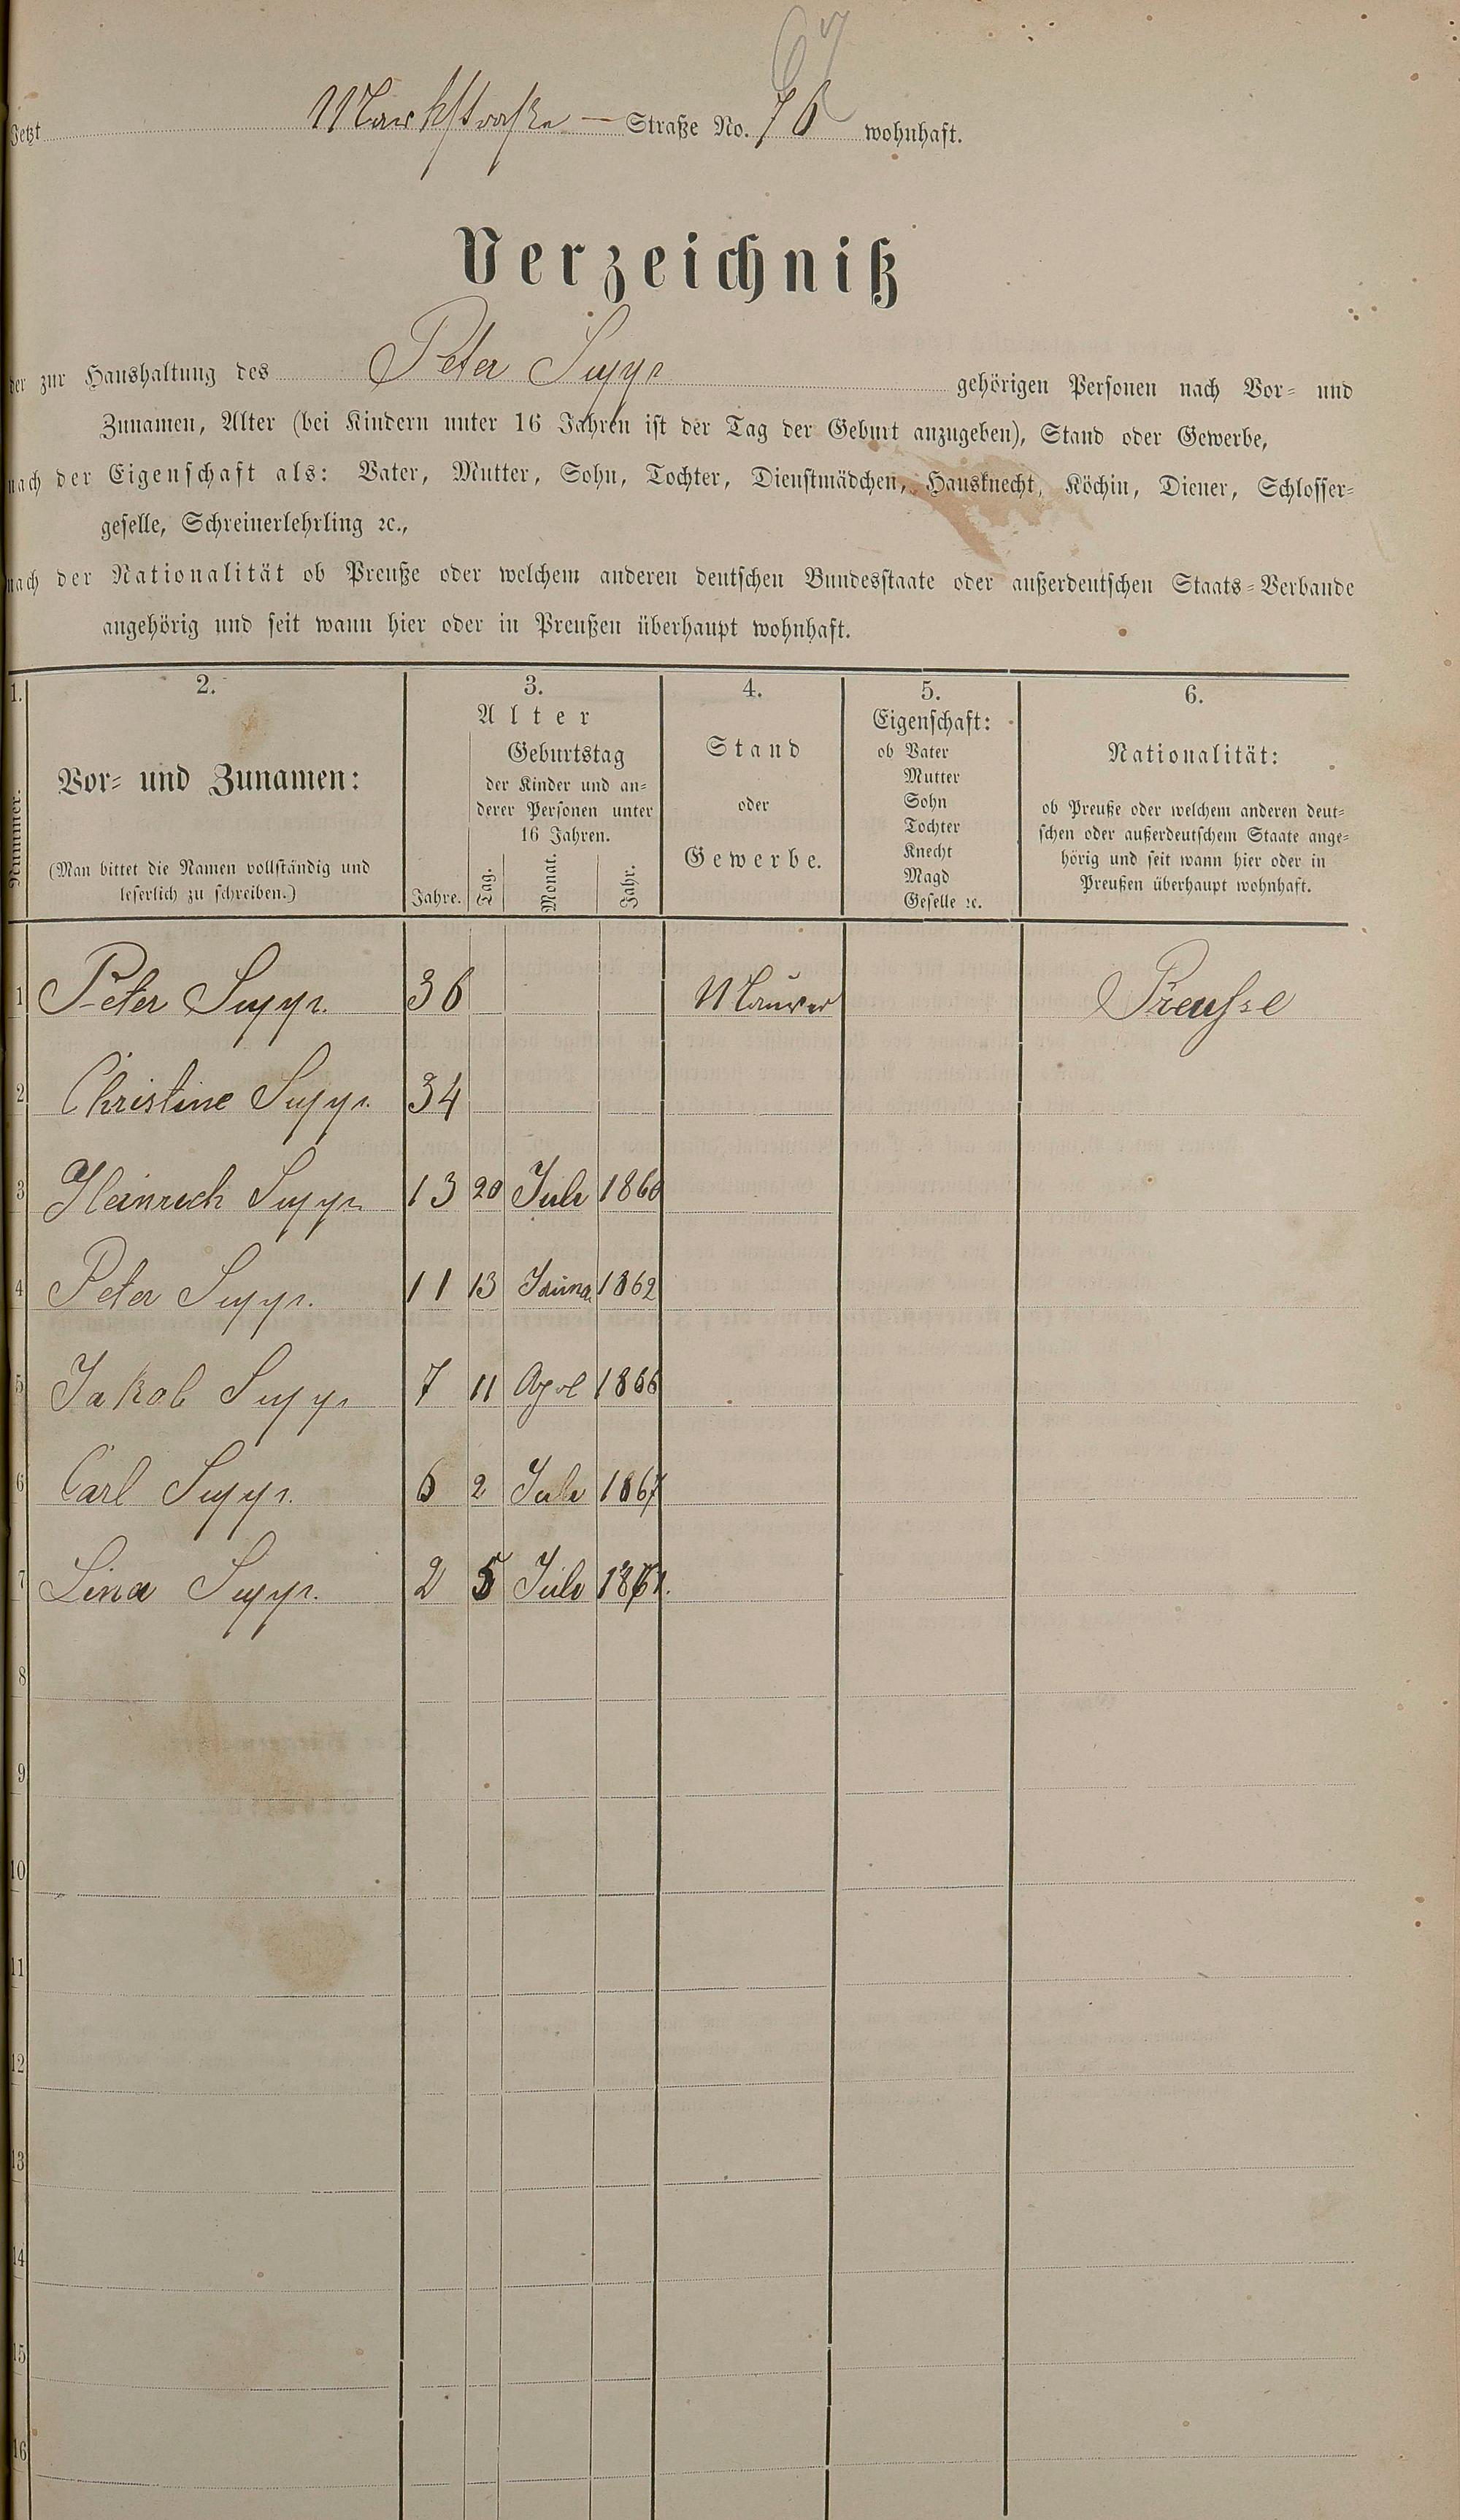 67
Jetzt Markstraße — Straße No. 76 wohnhaft.
Verzeichniß
der zur Haushaltung des Peter gehörigen Personen nach Vor- und
Zunamen, Alter (bei Kindern unter 16 Jahren ist der Tag der Geburt anzugeben), Stand oder Gewerbe,
nach der Eigenschaft als: Vater, Mutter, Sohn, Tochter, Dienstmädchen, Hausknecht, Köchin, Diener, Schlosser-
geselle, Schreinerlehrling ꝛc.,
nach der Nationalität ob Preuße oder welchem anderen deutschen Bundesstaate oder außerdeutschen Staats-Verbande
angehörig und seit wann hier oder in Preußen überhaupt wohnhaft.
1. 2. 3. 4. 5. 6.
Nummer.
Vor- und Zunamen:
(Man bittet die Namen vollständig und
leserlich zu schreiben.)
Alter
Geburtstag
der Kinder und an-
derer Personen unter
16 Jahren.
Jahre. Tag. Monat. Jahr.
Stand
oder
Gewerbe.
Eigenschaft:
ob Vater
Mutter
Sohn
Tochter
Knecht
Magd
Geselle ꝛc.
Nationalität:
ob Preuße oder welchem anderen deut-
schen oder außerdeutschem Staate ange-
hörig und seit wann hier oder in
Preußen überhaupt wohnhaft.
1 Peter 36 Maurer Preusse
2 Christine 34
3 Heinrich 13 20 Juli 1860
4 Peter 11 13 1862
5 Jakob 7 11 1866
6 Carl 6 2 Juli 1867
7 Lina 2 5 Juli 1871.
8
9
10
11
12
13
14
15
16